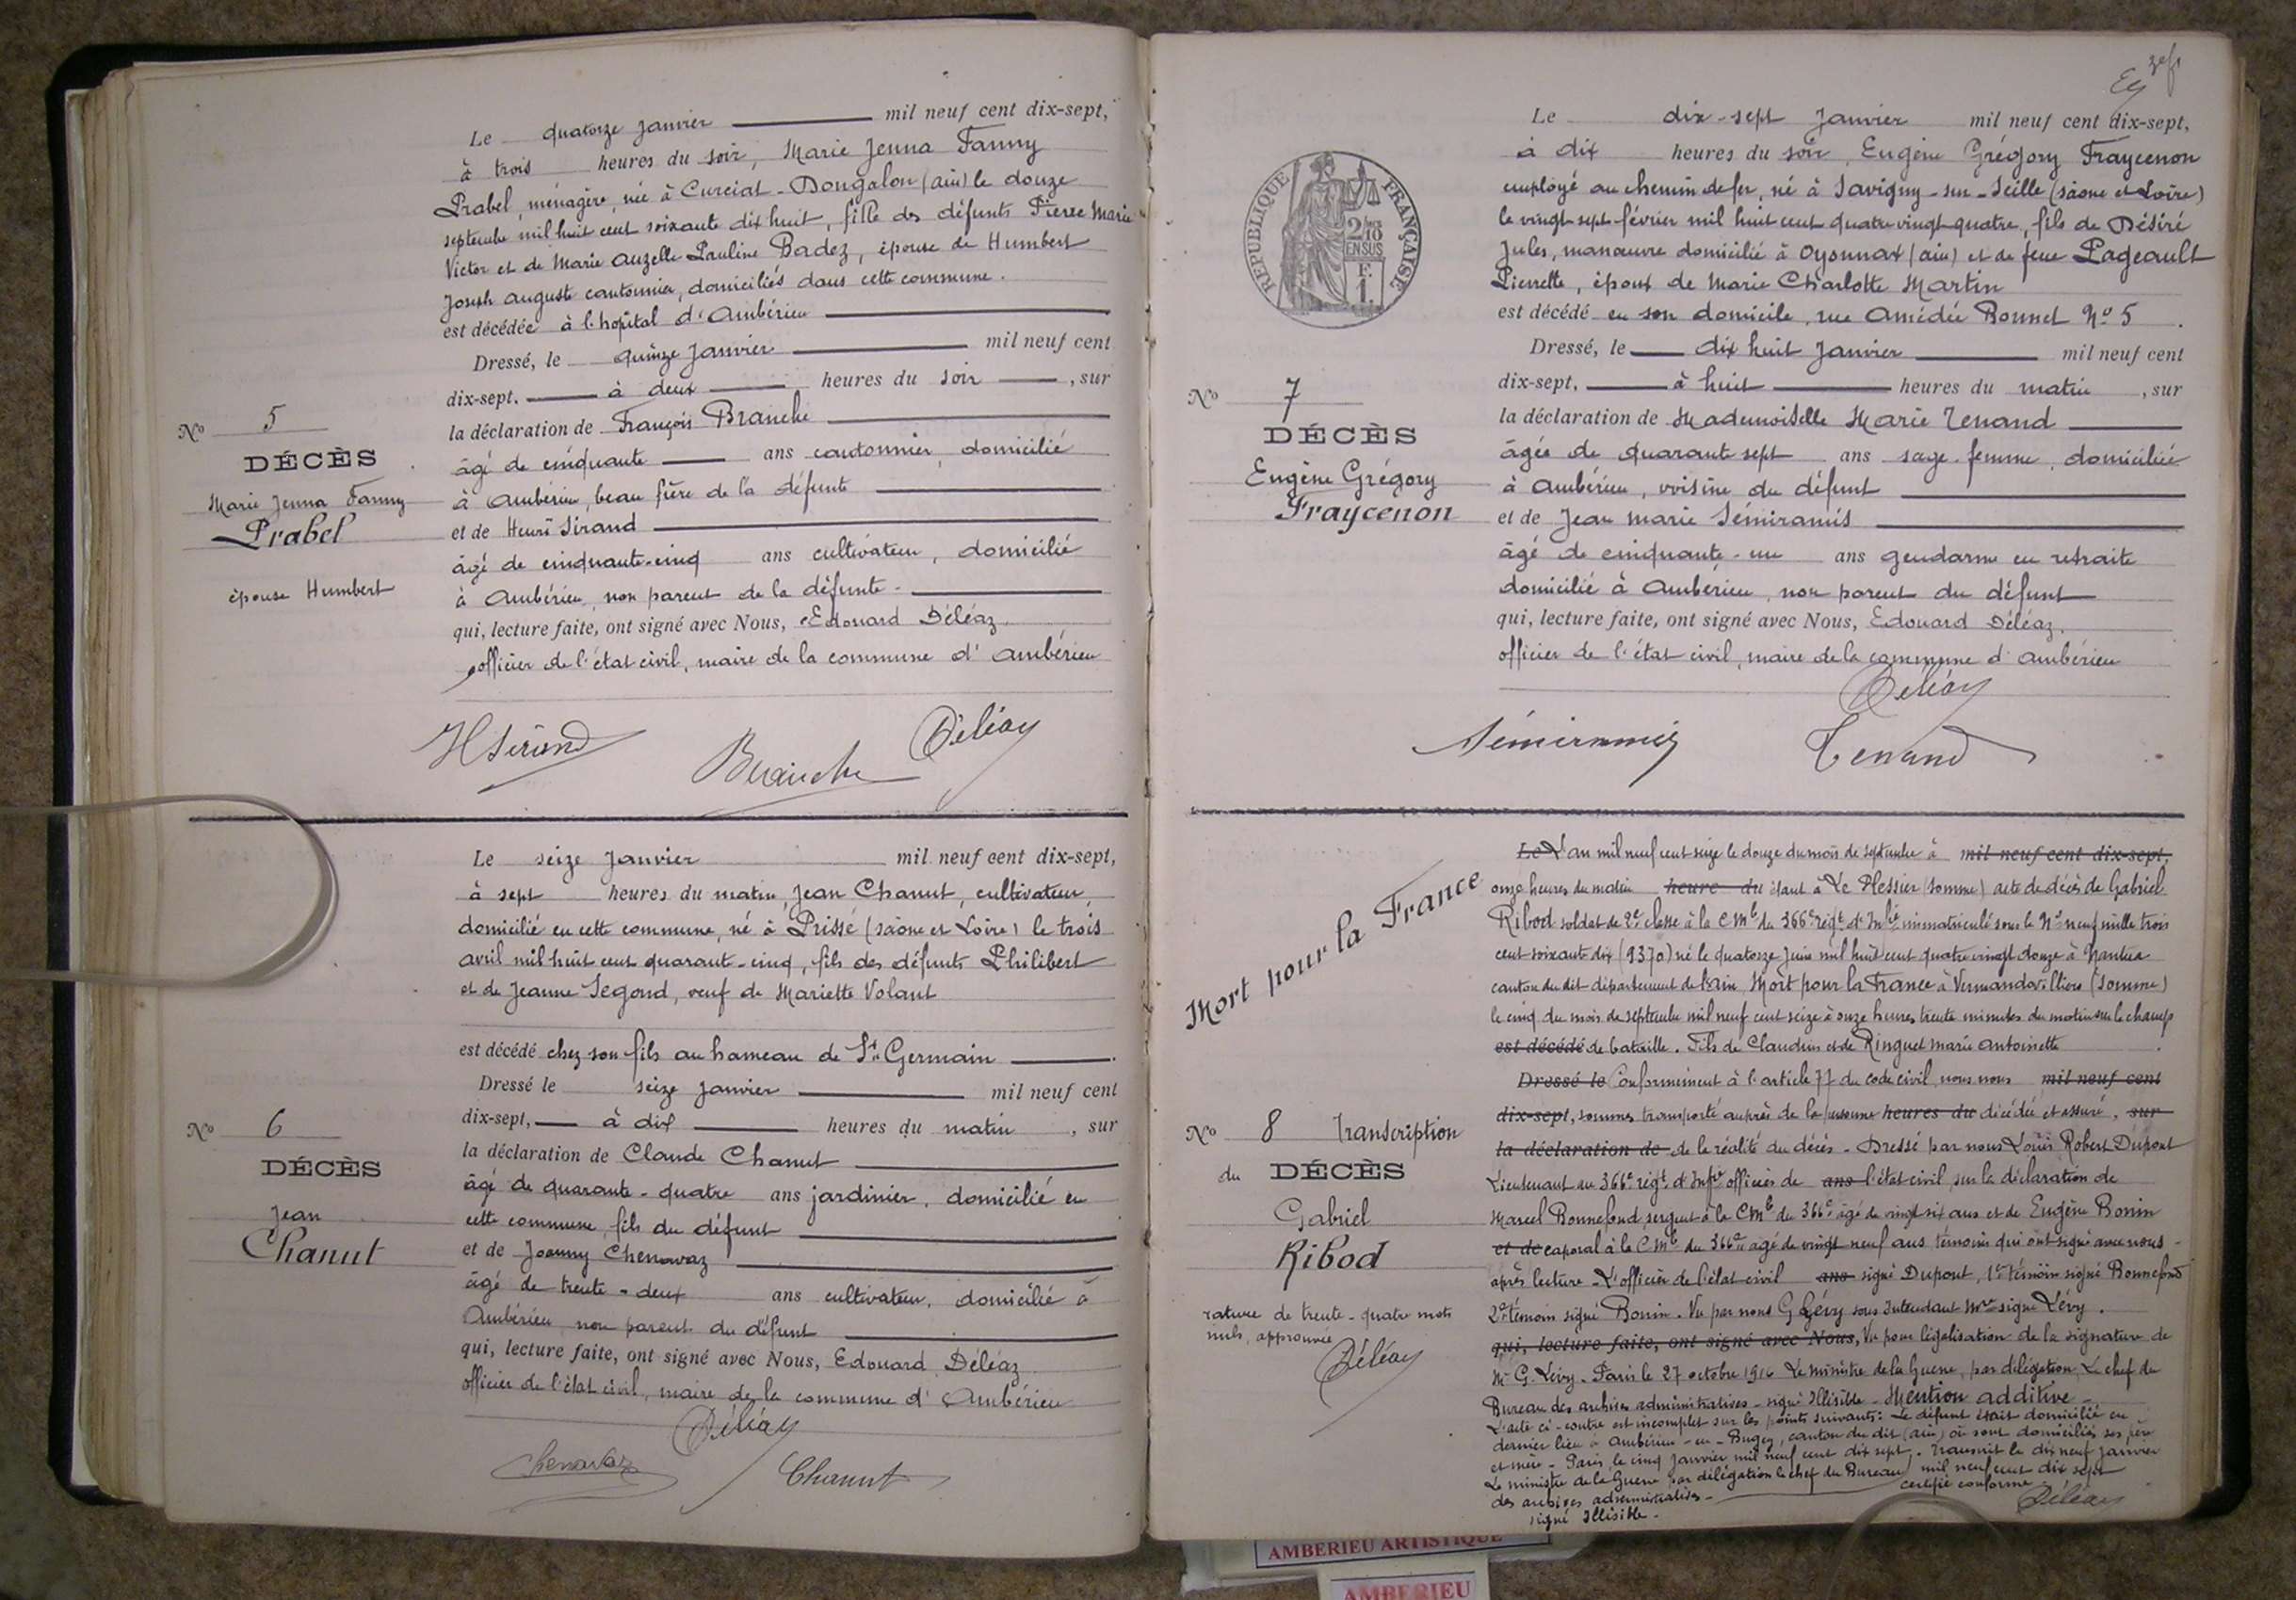 Le quatorze janvier mil neuf cent dix-sept,
à trois heures du soir, Marie Jenna Fanny
Prabel, ménagère, née à Curciat-Dongalon (ain) le douze
septembre mil huit cent soixante dix huit, fille des défunts Pierre Marie
Victor et de Marie Auzelle Pauline Badez, épouse de Humbert
Joseph Auguste cantonnier, domiciliés dans cette commune.
est décédée à l'hopital d'Ambérieu
Dressé, le quinze janvier mil neuf cent
dix-sept, à deux heures du soir, sur
la déclaration de François Branche
âgé de cinquante ans cantonnier, domicilié
à Ambérieu, beau frère de la défunte
et de Henri Sirand
âgé de cinquante-cinq ans cultivateur, domicilié
à Ambérieu, non parent de la défunte
qui, lecture faite, ont signé avec Nous, Edouard Déléaz
officier de l'état civil, maire de la commune d'Ambérieu
No 5
DÉCÈS
Marie Jenna Fanny
Prabel
épouse Humbert
H Sirand Branche Déléaz
Le seize janvier mil neuf cent dix-sept,
à sept heures du matin, Jean Chanut, cultivateur,
domicilié en cette commune, né à Prissé (saône et Loire) le trois
avril mil huit cent quarant-cinq, fils des défunts Philibert
et de Jeanne Segond, veuf de Mariette Volant
est décédé chez son fils au hameau de St Germain
Dressé le seize janvier mil neuf cent
dix-sept, à dix heures du matin, sur
la déclaration de Claude Chanut
âgé de quarante-quatre ans jardinier, domicilié en
cette commune, fils du défunt
et de Joanny Chenavaz
âgé de trente-deux ans cultivateur, domicilié à
Ambérieu non parent du défunt
qui, lecture faite, ont signé avec Nous, Edouard Déléaz
officier de l'état civil, maire de la commune d'Ambérieu
No 6
DÉCÈS
Jean
Chanut
Déléaz
Chenavaz Chanut
Le dix-sept Janvier mil neuf cent dix-sept,
à dix heures du soir, Eugène Grégory Fraycenon
employé au chemin de fer, né à Savigny-sur-Seille (saône et Loire)
le vingt sept février mil huit cent quatre vingt quatre, fils de Désiré
Jules, manœuvre domicilié à Oyonnax (ain) et de feue Pageault
Pierrette, époux de Marie Charlotte Martin
est décédé en son domicile, rue Amédée Bonnet No 5.
Dressé, le dix huit Janvier mil neuf cent
dix-sept, à huit heures du matin, sur
la déclaration de Mademoiselle Marie Tenand
âgée de quarante sept ans sage-femme, domiciliée
à Ambérieu, voisine du défunt
et de Jean Marie Sémiramis
âgé de cinquante-un ans gendarme en retraite
domicilié à Ambérieu, non parent du défunt
qui, lecture faite, ont signé avec Nous, Edouard Déléaz.
officier de l'état civil, maire de la commune d'Ambérieu
REPUBLIQUE FRANÇAISE
2/10 EN SUS
F. 1.
No 7
DÉCÈS
Eugène Grégory
Fraycenon
Déléaz
Sémiramis Tenand
Le L'an mil neuf cent seize le douze du mois de septembre à mil neuf cent dix-sept,
onze heures du matin heure du étant à Le Plessier (Somme) acte de décès de Gabriel
Ribod soldat de 2e classe à la C.M6 du 366e régt d'Infie immatriculé sous le No neuf mille trois
cent soixante dix (9370) né le quatorze Juin mil huit cent quatre vingt douze à Nantua
canton du dit département de l'ain, Mort pour la France à Vermandovilliers (Somme)
le cinq du mois de septembre mil neuf cent seize à onze heures trente minutes du matin sur le champ
est décédé de bataille. Fils de Claudius et de Ringuet Marie Antoinette
Dressé le Conformément à l'article 77 du code civil, nous nous mil neuf cent
dix-sept, sommes transporté auprès de la personne heures du décédée et assuré, sur
la déclaration de de la réalité du décès. Dressé par nous Louis Robert Dupont
Lieutenant au 366e régt d'Infie officier de ans l'état civil, sur la déclaration de
Marcel Bonnefond, sergent à la C.M6 du 366e âgé de vingt six ans et de Eugène Bonin
et de caporal à la C.M6 du 366e âgé de vingt neuf ans témoins qui ont signé avec nous
après lecture. L'officier de l'état civil ans signé Dupont, 1er témoin signé Bonnefond
2e témoin signé Bonin. Vu par nous G. Lévy sous Intendant Mre signé Lévy.
qui, lecture faite, ont signé avec Nous, Vu pour légalisation de la signature de
Mr G. Lévy. Paris le 27 octobre 1916 Le ministre de la Guerre, par délégation, Le chef du
Bureau des archives administratives - signé Illisible - Mention additive -
L'acte ci-contre est incomplet sur les points suivants: Le défunt était domicilié en
dernier lieu à Ambérieu-en-Bugey, canton du dit (ain) où sont domiciliés ses père
et mère - Paris, le cinq janvier mil neuf cent dix sept. Transcrit le dix neuf janvier
Le ministre de la Guerre par délégation le chef du Bureau mil neuf cent dix sept
des archives administratives - certifié conforme
signé Illisible - Déléaz
Mort pour la France
No 8 Transcription
du DÉCÈS
Gabriel
Ribod
rature de trente-quatre mots
nuls, approuvée
Déléaz
AMBERIEU ARTISTIQUE
AMBERIEU